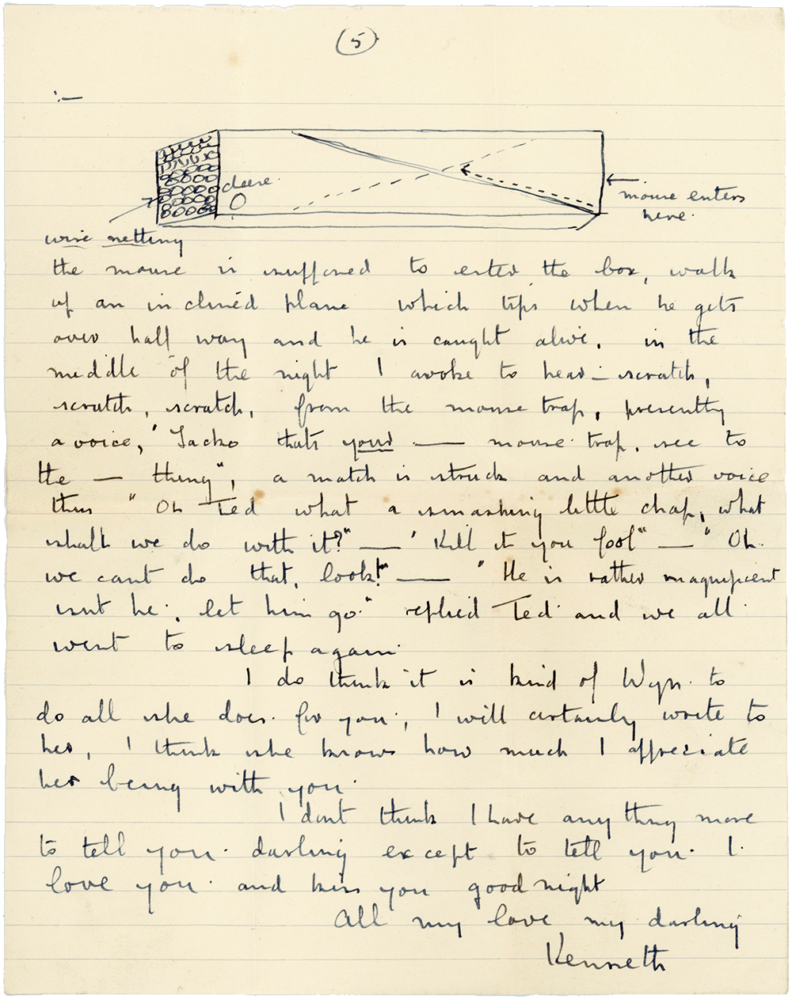 (5)
:—
cheese
mouse enters
here.
wire netting
the mouse is supposed to enter the box, walk
up an inclined plane which tips when he gets
over half way and he is caught alive. in the
middle of the night I awoke to hear – scratch,
scratch, scratch, from the mouse trap, presently
a voice, "Jacko thats your — mouse trap. see to
the — thing", a match is struck and another voice
thus "Oh Ted what a smashing little chap, what
shall we do with it?" — "Kill it you fool" — "Oh
we cant do that, look!" — "He is rather magnificent
isnt he, let him go." replied Ted and we all
went to sleep again.
I do think it is kind of Wyn. to
do all she does. for you, I will certainly write to
her, I think she knows how much I appreciate
her being with you.
I dont think I have anything more
to tell you. darling except to tell you. I.
love you. and kiss you goodnight
All my love my darling
Kenneth